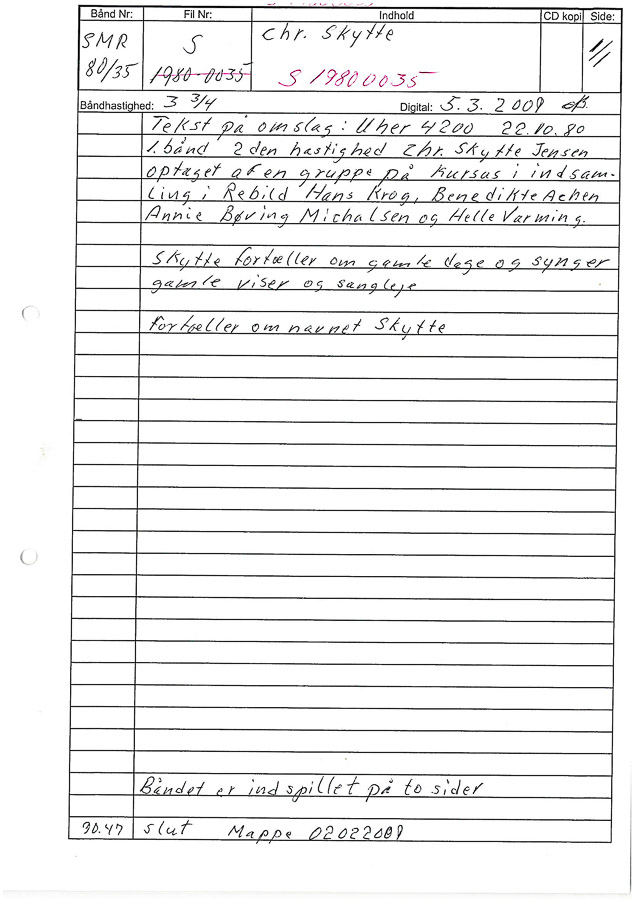 Bånd Nr: Fil Nr: Indhold CD kopi Side:
SMR 80/35 S 1980-0035 Chr. Skytte 1/1
S 19800035
Båndhastighed: 3 3/4 Digital: 5.3.2009
Tekst på omslag: Uher 4200 22.10.80
1. bånd 2 den hastighed Chr. Skytte Jensen
optaget af en gruppe på kursus i indsam-
ling i Rebild Hans Krog, Benedikte Achen
Annie Bøving Michalsen og Helle Varming.
Skytte fortæller om gamle dage og synger
gamle viser og sangleje
Fortæller om navnet Skytte
Båndet er indspillet på to sider
90.47 slut Mappe 02022009